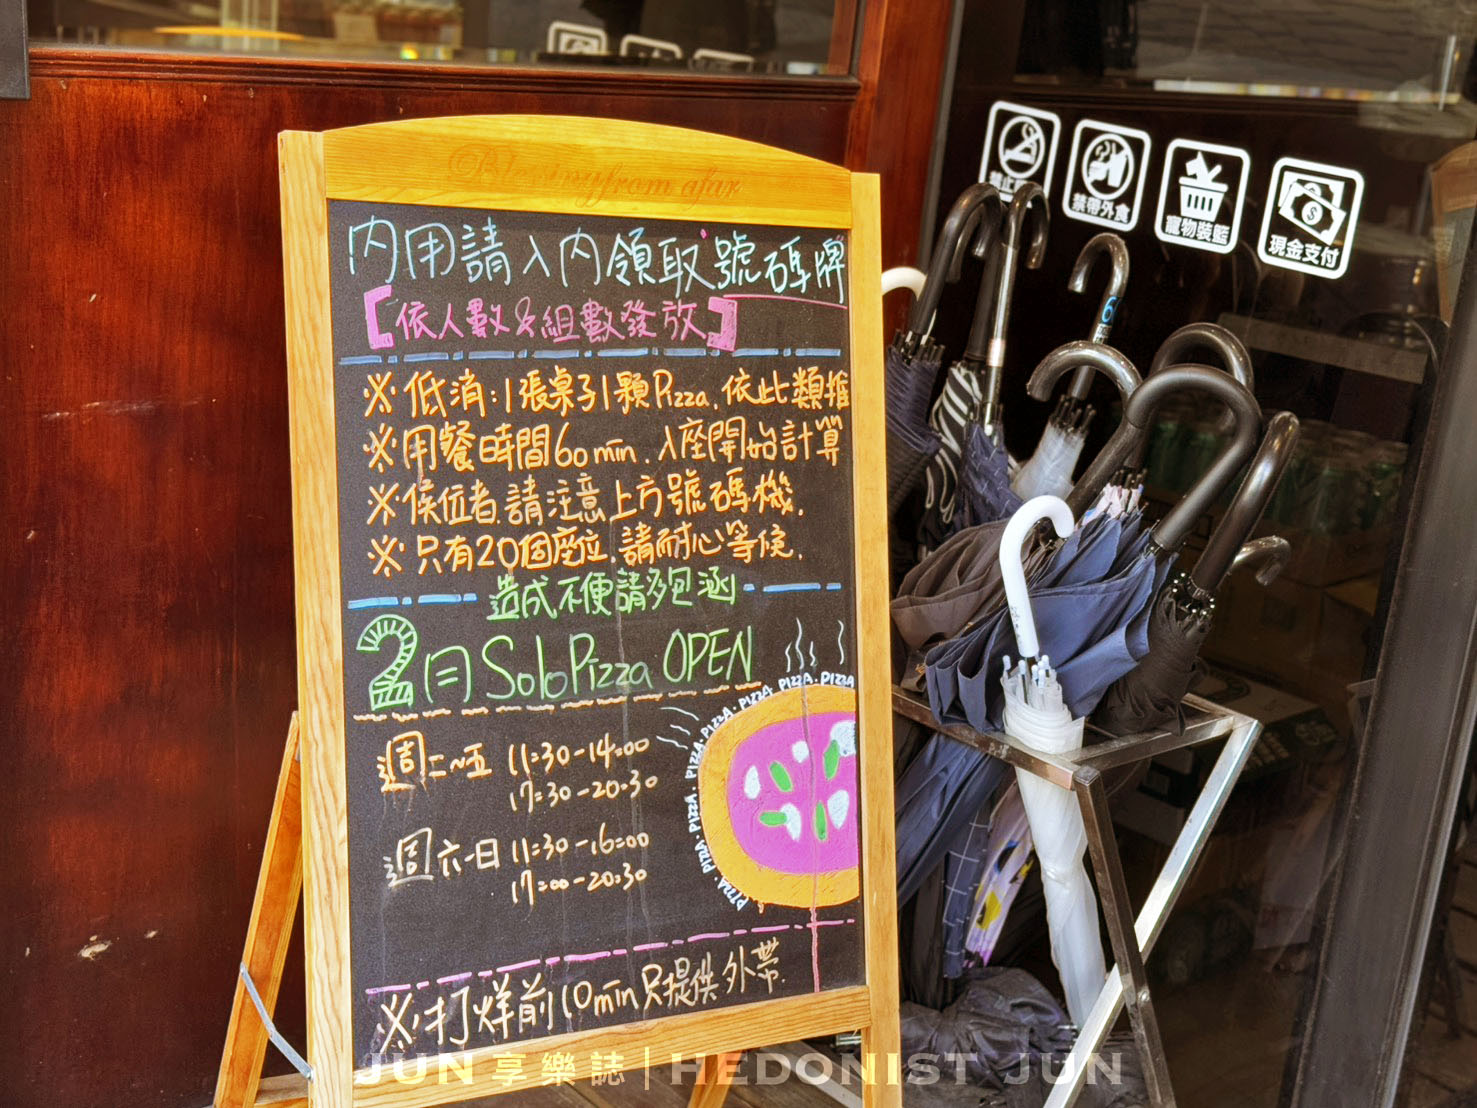 Blessing from afar
內用請入內領取號碼牌
【依人數&組數發放】
※低消:1張桌子1顆Pizza.依此類推
※用餐時間60min.入座開始計算
※候位者.請注意上方號碼機.
※只有20個座位.請耐心等候.
造成不便請多包涵
2月SoloPizza OPEN
週二~五 11:30-14:00
17:30-20:30
週六~日 11:30-16:00
17:00-20:30
PIZZA.PIZZA.PIZZA.PIZZA.PIZZA.PIZZA.PIZZA.PIZZA
※打烊前10min只提供外帶.
禁帶外食
寵物裝籃
現金支付
6
JUN享樂誌|HEDONIST JUN